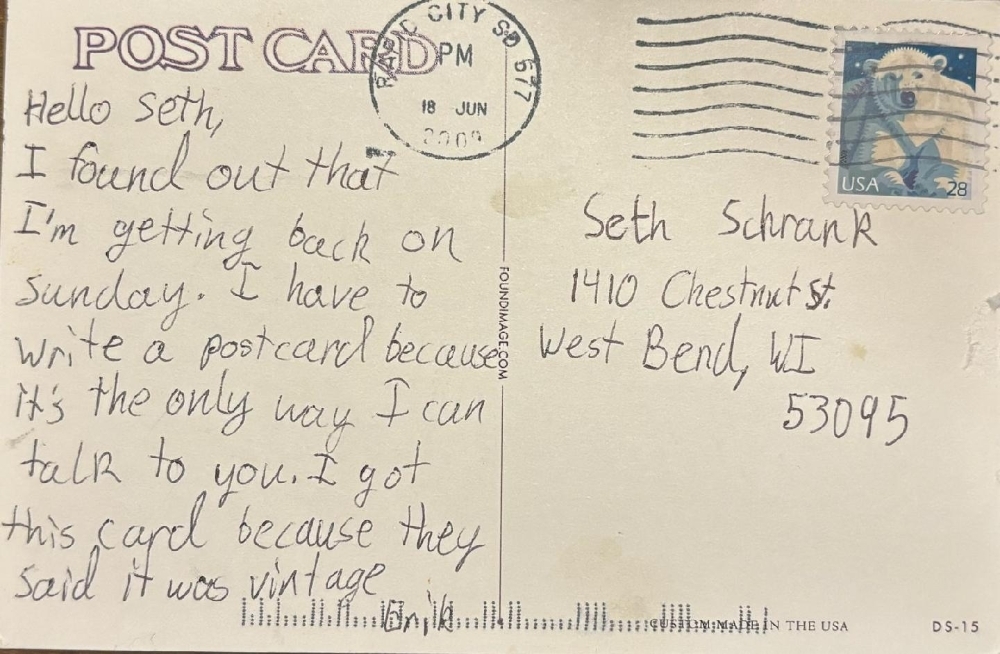 POST CARD
RAPID CITY SD 577
PM
18 JUN
2009
USA 28
Hello Seth,
I found out that
I'm getting back on
Sunday. I have to
write a postcard because
it's the only way I can
talk to you. I got
this card because they
said it was vintage
Erik
FOUNDIMAGE.COM
Seth Schrank
1410 Chestnut St.
West Bend, WI
53095
CUSTOM MADE IN THE USA
DS-15